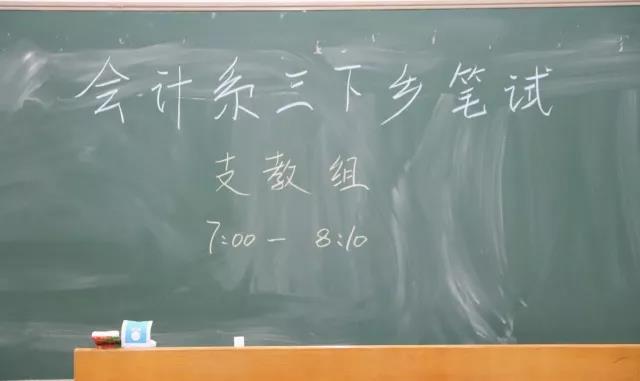 会计系三下乡笔试
支教组
7:00 — 8:10